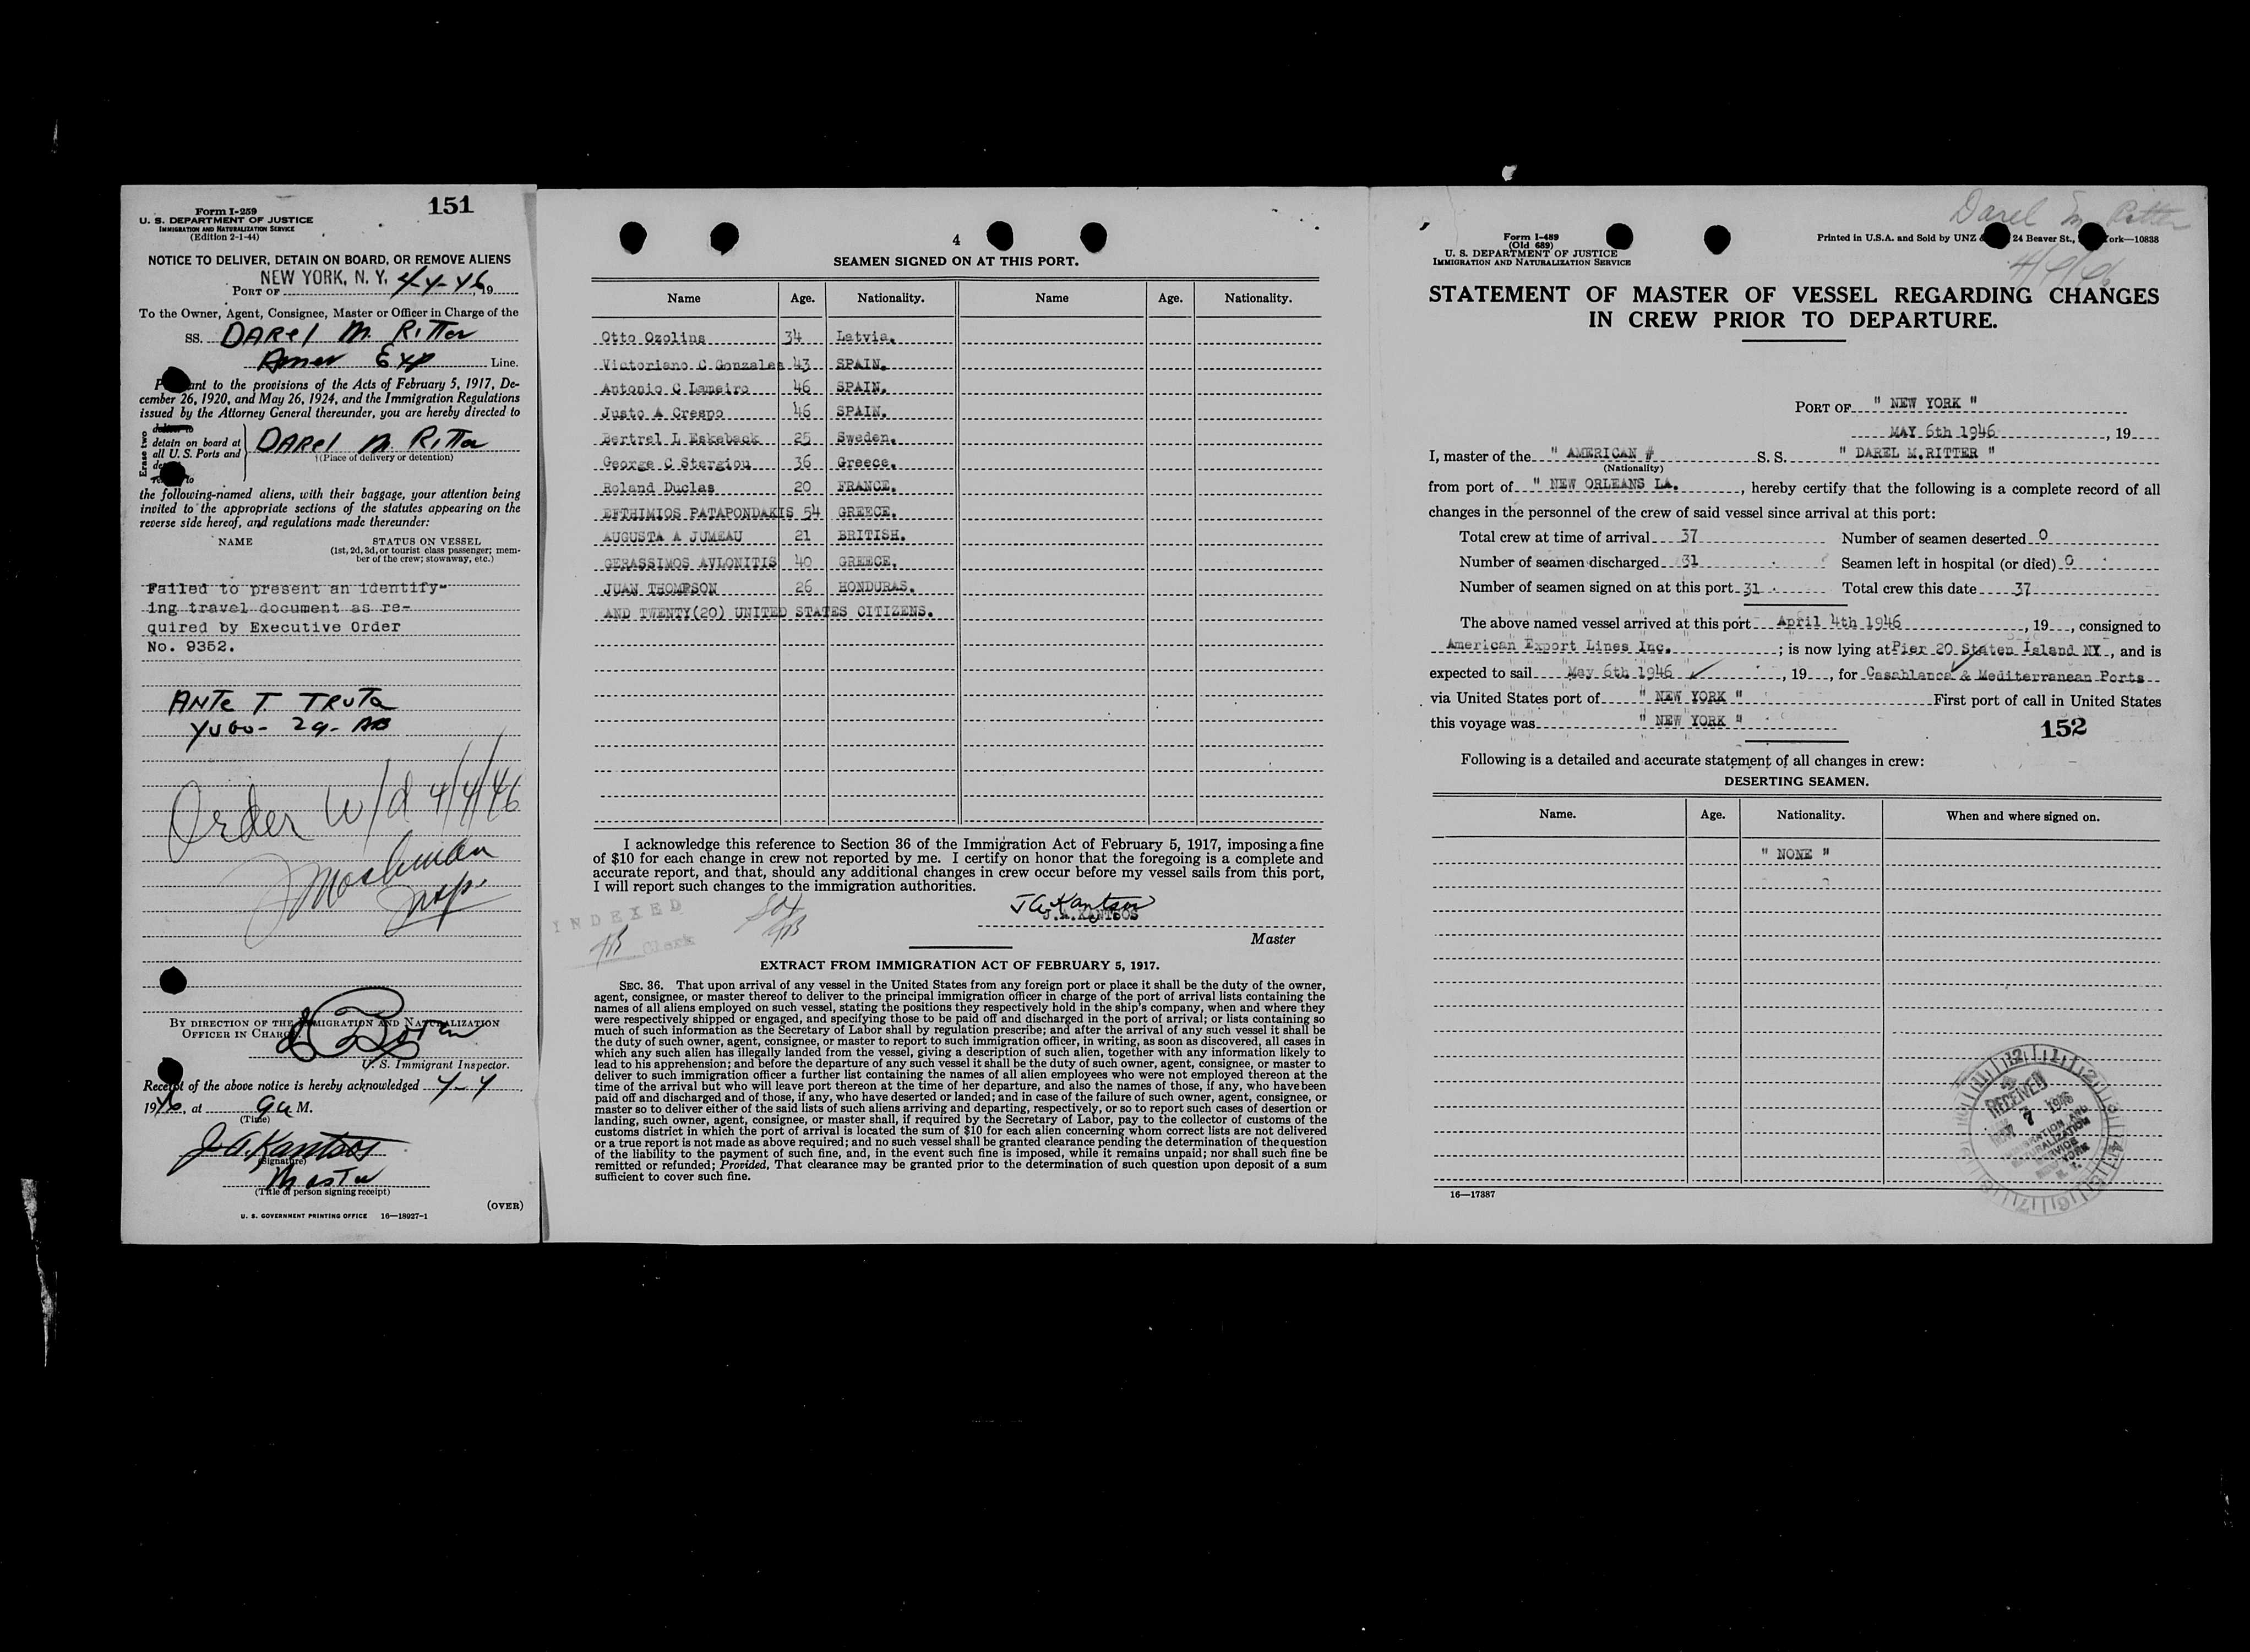 Form I-259
U. S. DEPARTMENT OF JUSTICE
IMMIGRATION AND NATURALIZATION SERVICE
(Edition 2-1-44)
151
NOTICE TO DELIVER, DETAIN ON BOARD, OR REMOVE ALIENS
NEW YORK, N. Y.
PORT OF 4-4-46, 19
To the Owner, Agent, Consignee, Master or Officer in Charge of the
SS. DAREL M. RITTER
Amer Exp Line.
to the provisions of the Acts of February 5, 1917, De-
cember 26, 1920, and May 26, 1924, and the Immigration Regulations
issued by the Attorney General thereunder, you are hereby directed to
Erase two
detain on board at
all U. S. Ports and
DAREL M. RITTER
(Place of delivery or detention)
the following-named aliens, with their baggage, your attention being
invited to the appropriate sections of the statutes appearing on the
reverse side hereof, and regulations made thereunder:
NAME STATUS ON VESSEL
(1st, 2d, 3d, or tourist class passenger; mem-
ber of the crew; stowaway, etc.)
Failed to present an identify-
ing travel document as re-
quired by Executive Order
No. 9352.
ANTE T TRUTA
YUGO- 29- AB
Order w/d 4/4/46
Insp.
BY DIRECTION OF THE IMMIGRATION AND NATURALIZATION
OFFICER IN CHARGE
U. S. Immigrant Inspector.
Receipt of the above notice is hereby acknowledged 4-4
1946, at 9a M.
(Time)
J. A. Kantsos
(Signature)
Master
(Title of person signing receipt)
(OVER)
U. S. GOVERNMENT PRINTING OFFICE 16—18927-1
4
SEAMEN SIGNED ON AT THIS PORT.
Name Age. Nationality. Name Age. Nationality.
Otto Ozolins 34 Latvia.
Victoriano C Gonzales 43 SPAIN.
Antonio C Lameiro 46 SPAIN.
Justo A Crespo 46 SPAIN.
Bertrel L Eskeback 25 Sweden.
George C Stergiou 36 Greece.
Roland Duclas 20 FRANCE.
EFTHIMIOS PATAPONDAKIS 54 GREECE.
AUGUSTA A JUMEAU 21 BRITISH.
GERASSIMOS AVLONITIS 40 GREECE.
JUAN THOMPSON 26 HONDURAS.
AND TWENTY(20) UNITED STATES CITIZENS.
I acknowledge this reference to Section 36 of the Immigration Act of February 5, 1917, imposing a fine
of $10 for each change in crew not reported by me. I certify on honor that the foregoing is a complete and
accurate report, and that, should any additional changes in crew occur before my vessel sails from this port,
I will report such changes to the immigration authorities.
J A Kantsos
J.A.KANTSOS
INDEXED
Clerk
Master
EXTRACT FROM IMMIGRATION ACT OF FEBRUARY 5, 1917.
SEC. 36. That upon arrival of any vessel in the United States from any foreign port or place it shall be the duty of the owner,
agent, consignee, or master thereof to deliver to the principal immigration officer in charge of the port of arrival lists containing the
names of all aliens employed on such vessel, stating the positions they respectively hold in the ship's company, when and where they
were respectively shipped or engaged, and specifying those to be paid off and discharged in the port of arrival; or lists containing so
much of such information as the Secretary of Labor shall by regulation prescribe; and after the arrival of any such vessel it shall be
the duty of such owner, agent, consignee, or master to report to such immigration officer, in writing, as soon as discovered, all cases in
which any such alien has illegally landed from the vessel, giving a description of such alien, together with any information likely to
lead to his apprehension; and before the departure of any such vessel it shall be the duty of such owner, agent, consignee, or master to
deliver to such immigration officer a further list containing the names of all alien employees who were not employed thereon at the
time of the arrival but who will leave port thereon at the time of her departure, and also the names of those, if any, who have been
paid off and discharged and of those, if any, who have deserted or landed; and in case of the failure of such owner, agent, consignee, or
master so to deliver either of the said lists of such aliens arriving and departing, respectively, or so to report such cases of desertion or
landing, such owner, agent, consignee, or master shall, if required by the Secretary of Labor, pay to the collector of customs of the
customs district in which the port of arrival is located the sum of $10 for each alien concerning whom correct lists are not delivered
or a true report is not made as above required; and no such vessel shall be granted clearance pending the determination of the question
of the liability to the payment of such fine, and, in the event such fine is imposed, while it remains unpaid; nor shall such fine be
remitted or refunded; Provided, That clearance may be granted prior to the determination of such question upon deposit of a sum
sufficient to cover such fine.
Darel M Ritter
Form I-489
(Old 689)
U. S. DEPARTMENT OF JUSTICE
IMMIGRATION AND NATURALIZATION SERVICE
Printed in U.S.A. and Sold by UNZ & 24 Beaver St., York—10838
STATEMENT OF MASTER OF VESSEL REGARDING CHANGES
IN CREW PRIOR TO DEPARTURE.
PORT OF " NEW YORK "
MAY 6th 1946, 19
I, master of the " AMERICAN # S. S. " DAREL M.RITTER "
(Nationality)
from port of " NEW ORLEANS LA., hereby certify that the following is a complete record of all
changes in the personnel of the crew of said vessel since arrival at this port:
Total crew at time of arrival 37 Number of seamen deserted 0
Number of seamen discharged 31 Seamen left in hospital (or died) 0
Number of seamen signed on at this port 31 Total crew this date 37
The above named vessel arrived at this port April 4th 1946, 19, consigned to
American Export Lines Inc.; is now lying at Pier 20 Staten Island NY, and is
expected to sail May 6th 1946, 19, for Casablanca & Mediterranean Ports
via United States port of " NEW YORK " First port of call in United States
this voyage was " NEW YORK "
152
Following is a detailed and accurate statement of all changes in crew:
DESERTING SEAMEN.
Name. Age. Nationality. When and where signed on.
" NONE "
RECEIVED
MAY 7 1946
IMMIGRATION AND
NATURALIZATION
SERVICE
NEW YORK
N. Y.
16—17387